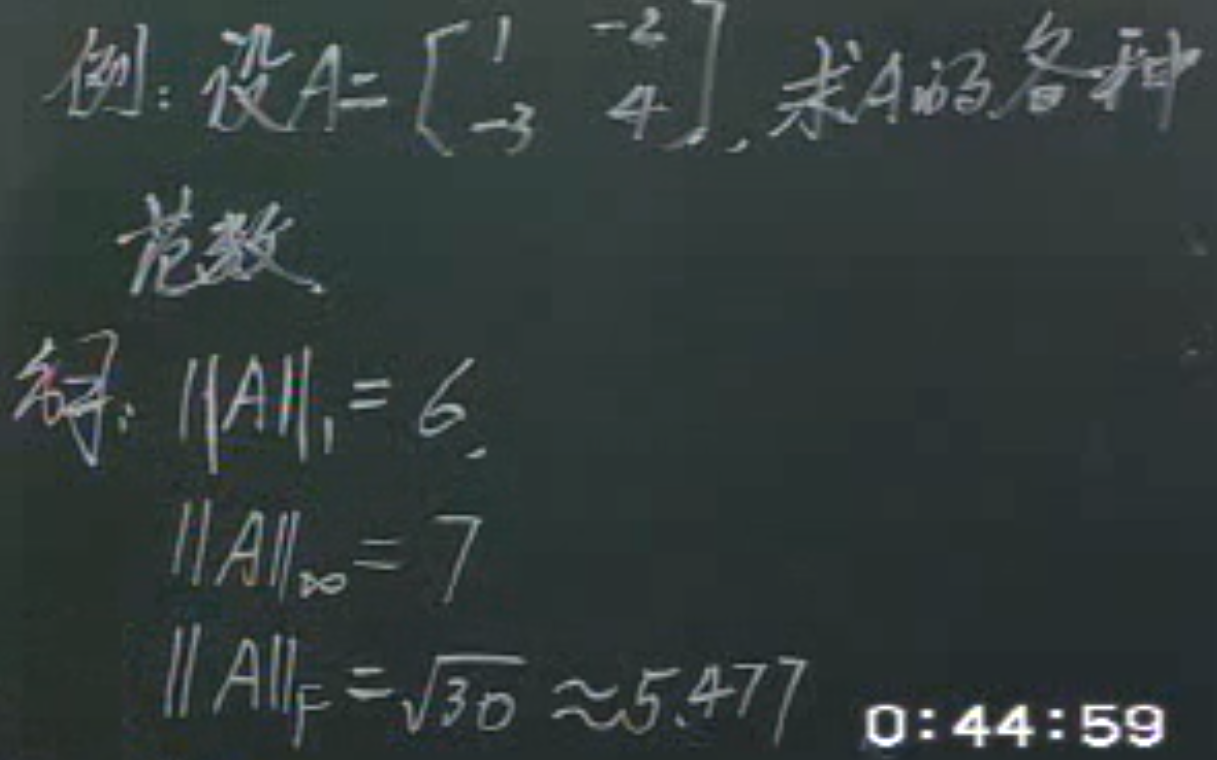 例: 设A= [1 -2
-3 4], 求A的各种
范数.
解: ||A||₁ = 6.
||A||∞ = 7
||A||F = √30 ≈ 5.477
0:44:59